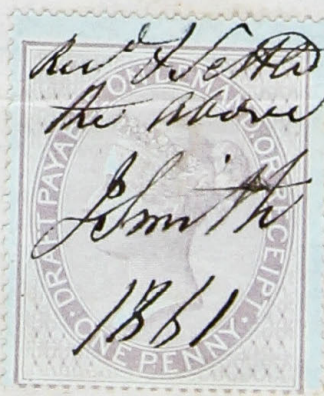 Recd & Settled
the above
J Smith
1861
DRAFT PAYABLE ON DEMAND OR RECEIPT
ONE PENNY